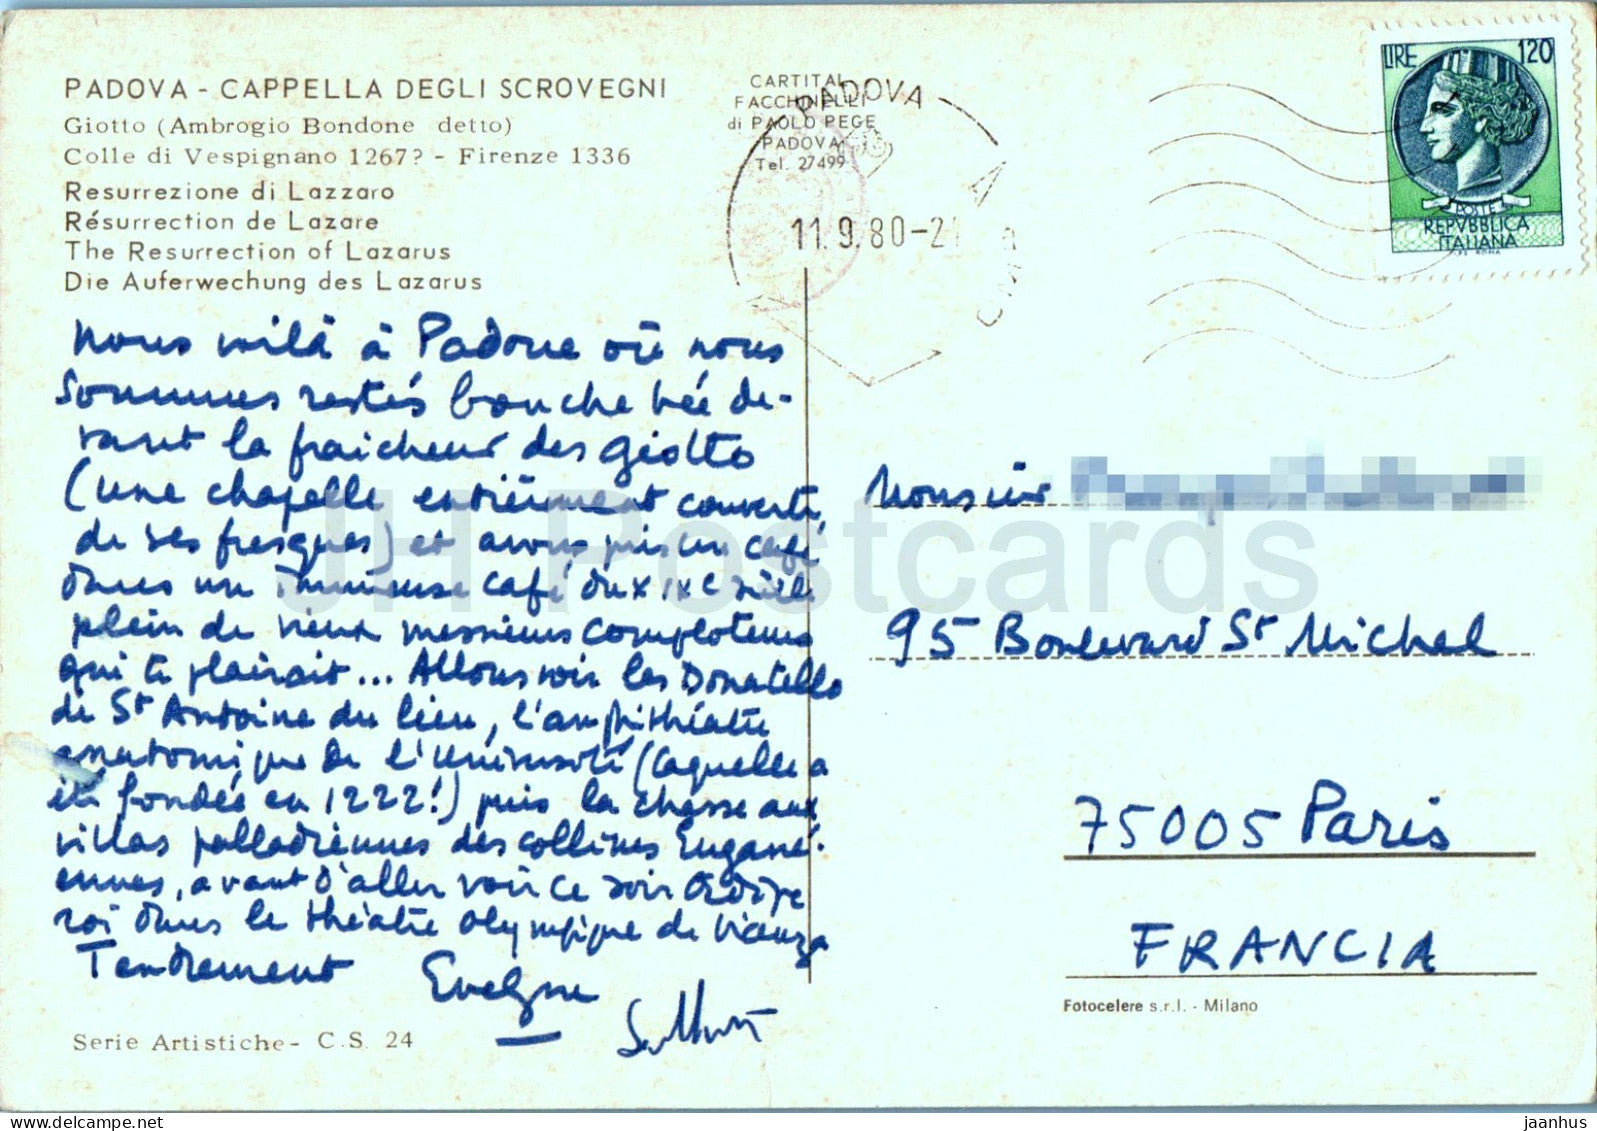 PADOVA - CAPPELLA DEGLI SCROVEGNI
Giotto (Ambrogio Bondone detto)
Colle di Vespignano 1267? - Firenze 1336
Resurrezione di Lazzaro
Résurrection de Lazare
The Resurrection of Lazarus
Die Auferwechung des Lazarus
CARTITAL
FACCHINELLI
di PAOLO PEGE
PADOVA
Tel. 27499
PADOVA
11.9.80-2
LIRE 120
POSTE
REPVBBLICA
ITALIANA
Nous voilà à Padoue où nous
sommes restés bouche bée de-
vant la fraicheur des giotto
(une chapelle entièrement couverte
de ses fresques) et avons pris un café
dans un immense café du XIXe siècle
plein de vieux messieurs comploteurs
qui te plairait... Allons voir les Donatello
de St Antoine du lieu, l'amphithéatre
anatomique de l'Université (laquelle a
été fondée en 1222!) puis la chasse aux
villas palladiennes des collines Eugané-
ennes, avant d'aller voir ce soir Œdipe
roi dans le théatre olympique de Vicenza
Tendrement Evelyne
Monsieur
95 Boulevard St Michel
75005 Paris
FRANCIA
Fotocelere s.r.l. - Milano
Serie Artistiche - C.S. 24
JH Postcards
jaanhus @ delcampe.net